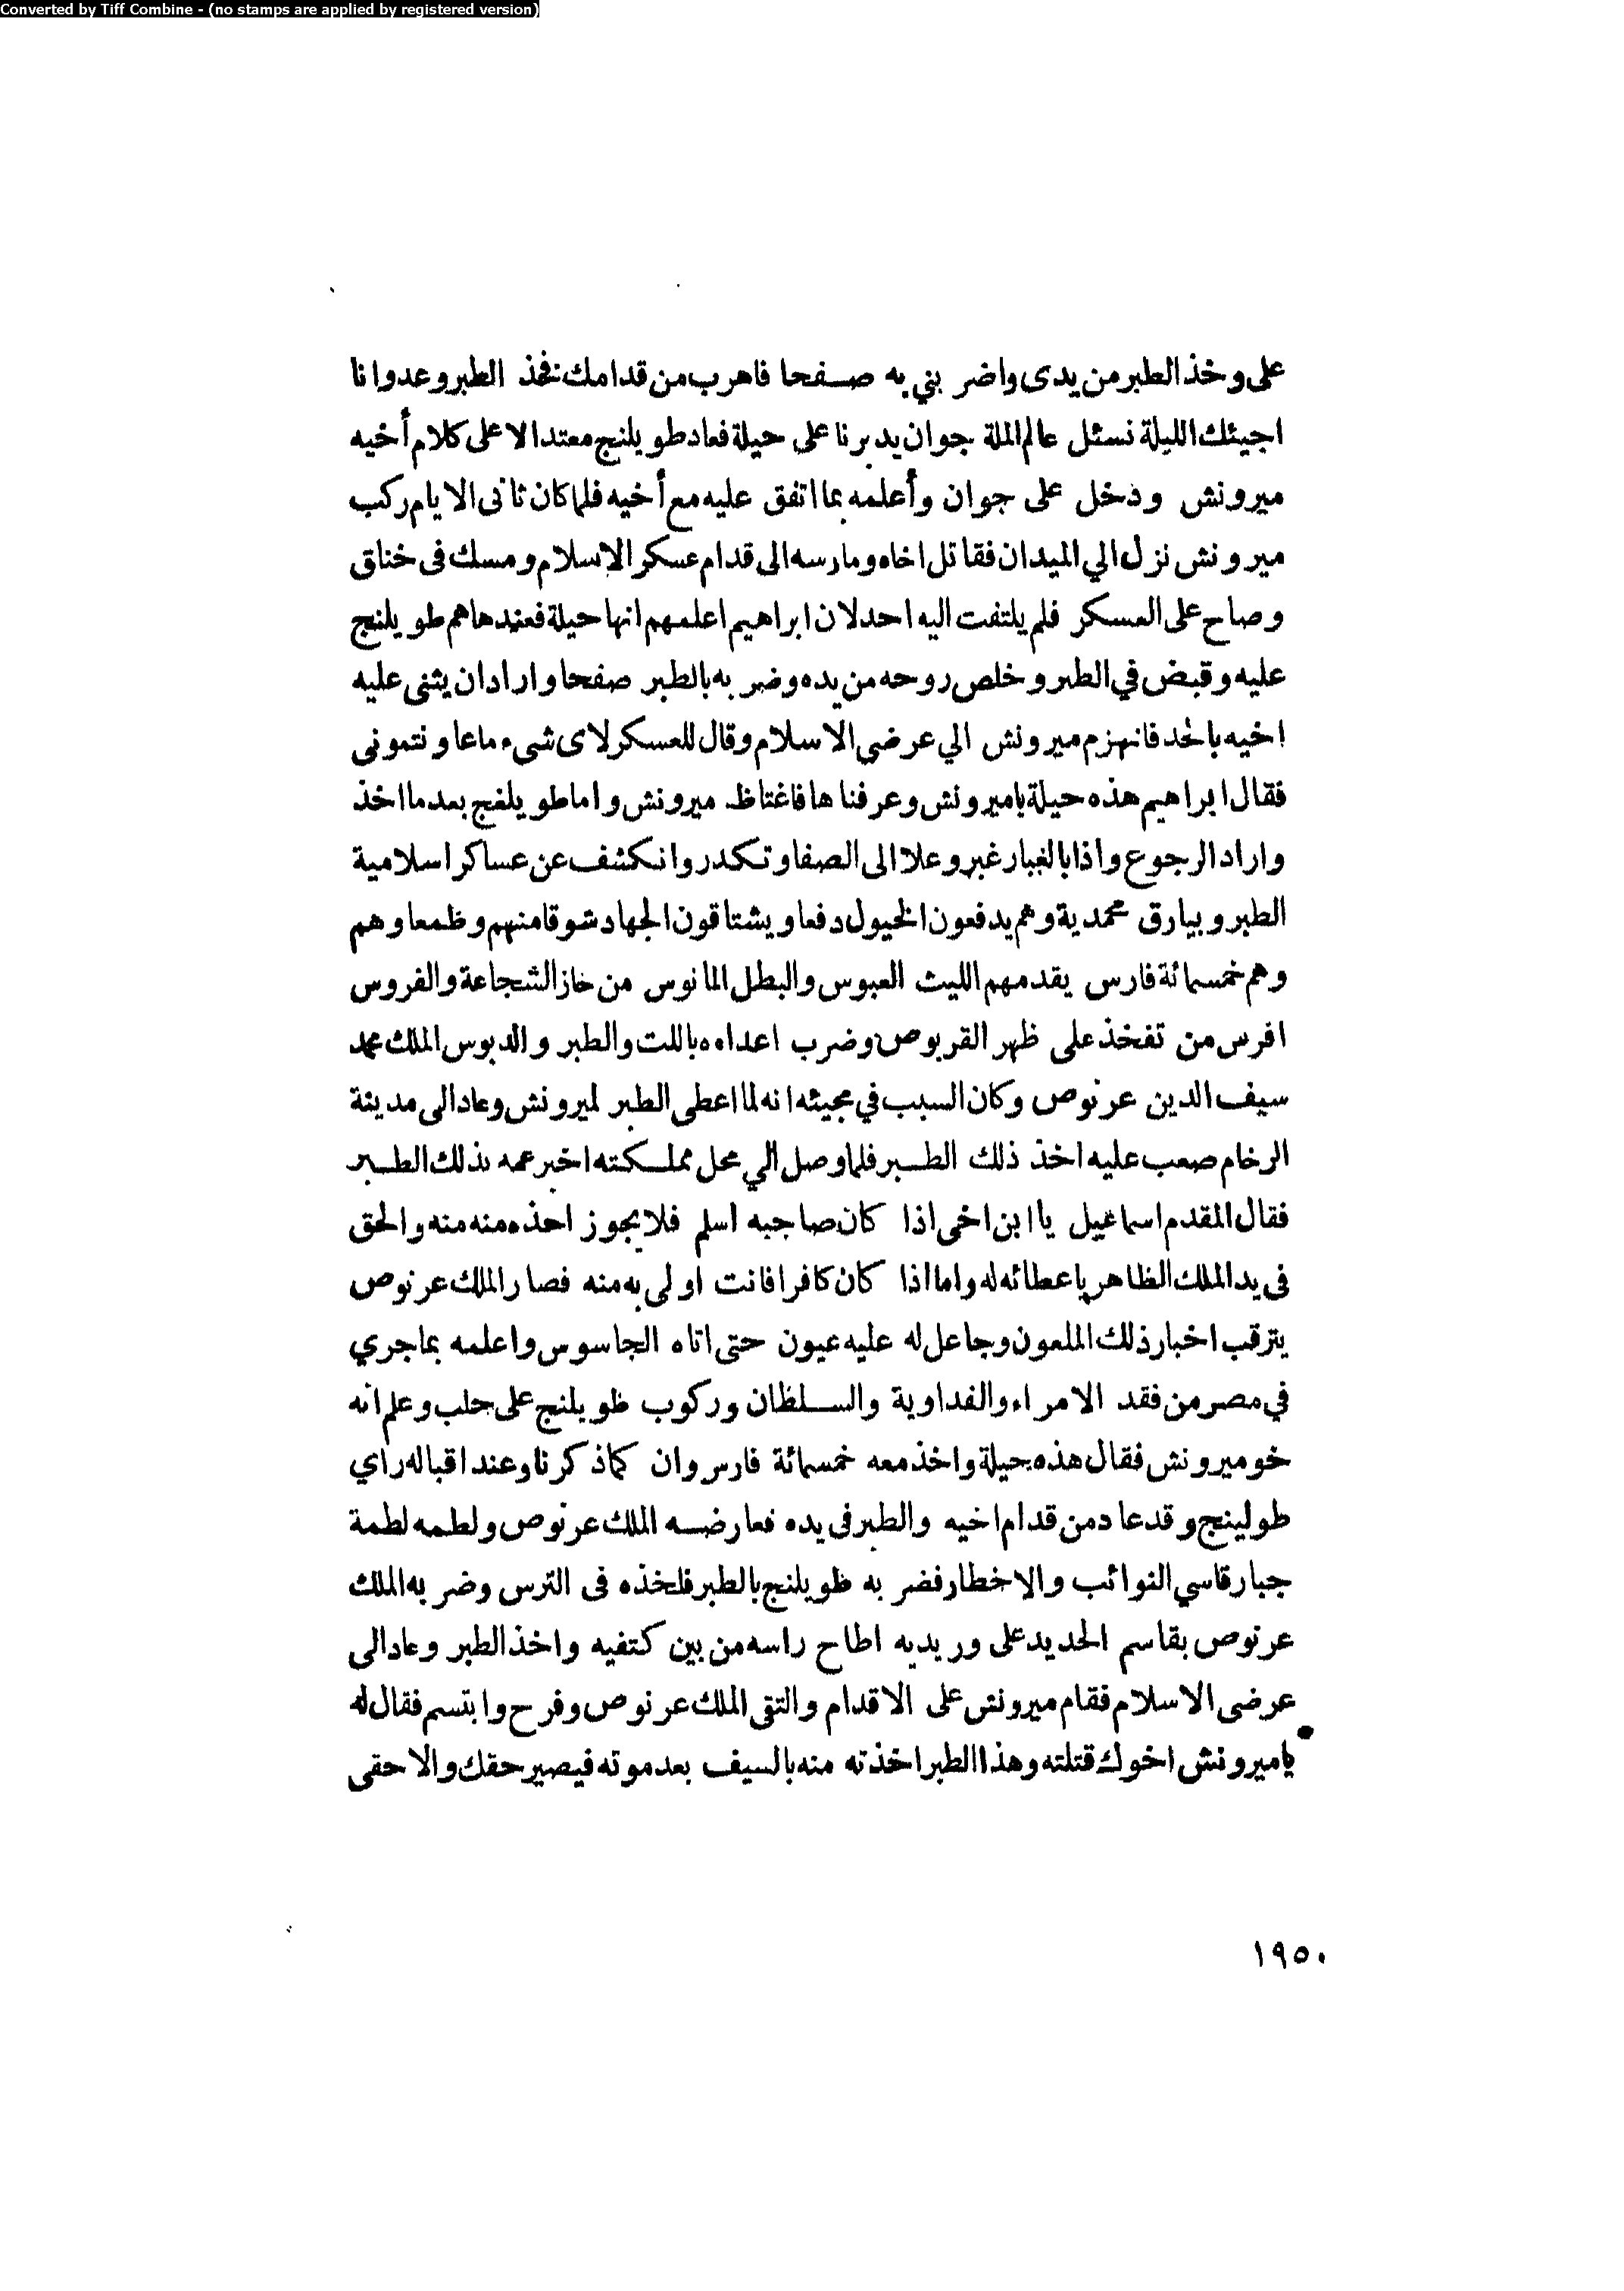 Converted by Tiff Combine - (no stamps are applied by registered version)
على وخذ الطبر من يدى واضر بني به صفحا فاهرب من قدامك فخذ الطبر وعدوانا
اجيئك الليلة نسئل عالم الملة جوان يدبرنا على حيلة فعاد طويلنج معتدالا على كلام أخيه
ميرونش ودخل على جوان وأعلمه بما اتفق عليه مع أخيه فلما كان ثانى الايام ركب
ميرونش نزل الي الميدان فقاتل اخاه ومارسه الى قدام عسكر الاسلام ومسك فى خناق
وصاح على العسكر فلم يلتفت اليه احد لان ابراهيم اعلمهم انها حيلة فعندها هم طويلنج
عليه وقبض في الطبر وخلص روحه من يده وضربه بالطبر صفحا واراد ان يثنى عليه
اخيه بالحد فانهزم ميرونش الي عرضي الاسلام وقال للعسكر لاى شىء ماعاونتمونى
فقال ابراهيم هذه حيلة ياميرونش وعرفناها فاغتاظ ميرونش واما طويلفج بعد ما اخذ
واراد الرجوع واذا بالغبار غبر وعلا الى الصفا وتكدر وانكشف عن عساكر اسلامية
الطبر وبيارق محمدية وهم يدفعون الخيول دفعا ويشتاقون الجهاد شوقا منهم وظمعا وهم
وهم خمسمائة فارس يقدمهم الليث العبوس والبطل المانوس من حاز الشجاعة والفروس
افرس من تفخذ على ظهر القربوص وضرب اعداءه باللت والطبر والدبوس الملك محمد
سيف الدين عرنوص وكان السبب في مجيئه انه لما اعطى الطبر لميرونش وعاد الى مدينة
الرخام صعب عليه اخذ ذلك الطبر فلما وصل الي محل مملكته اخبر عمه بذلك الطبر
فقال المقدم اسماعيل يا ابن اخى اذا كان صاحبه اسلم فلا يجوز احذه منه منه والحق
فى يد الملك الظاهر باعطائه له واما اذا كان كافرا فانت اولى به منه فصار الملك عرنوص
يترقب اخبار ذلك الملعون وجاعل له عليه عيون حتى اتاه الجاسوس واعلمه بماجري
في مصر من فقد الامراء والفداوية والسلظان وركوب ظويلنج على حلب وعلم انه
خو ميرونش فقال هذه حيلة واخذ معه خمسمائة فارس وان كماذكرنا وعند اقباله راي
طولينج وقد عاد من قدام اخيه والطبر فى يده فعارضه الملك عرنوص ولطمه لطمة
جبار قاسي النوائب والاخطار فضربه ظويلنج بالطبر فلخذه فى الترس وضربه الملك
عرنوص بقاسم الحديد على وريديه اطاح راسه من بين كتفيه واخذ الطبر وعاد الى
عرضى الاسلام فقام ميرونش على الاقدام والتقى الملك عرنوص وفرح وابتسم فقال له
ياميرونش اخوك قتلته وهذا الطبر اخذته منه بالسيف بعد موته فيصير حقك والا حقى
١٩٥٠